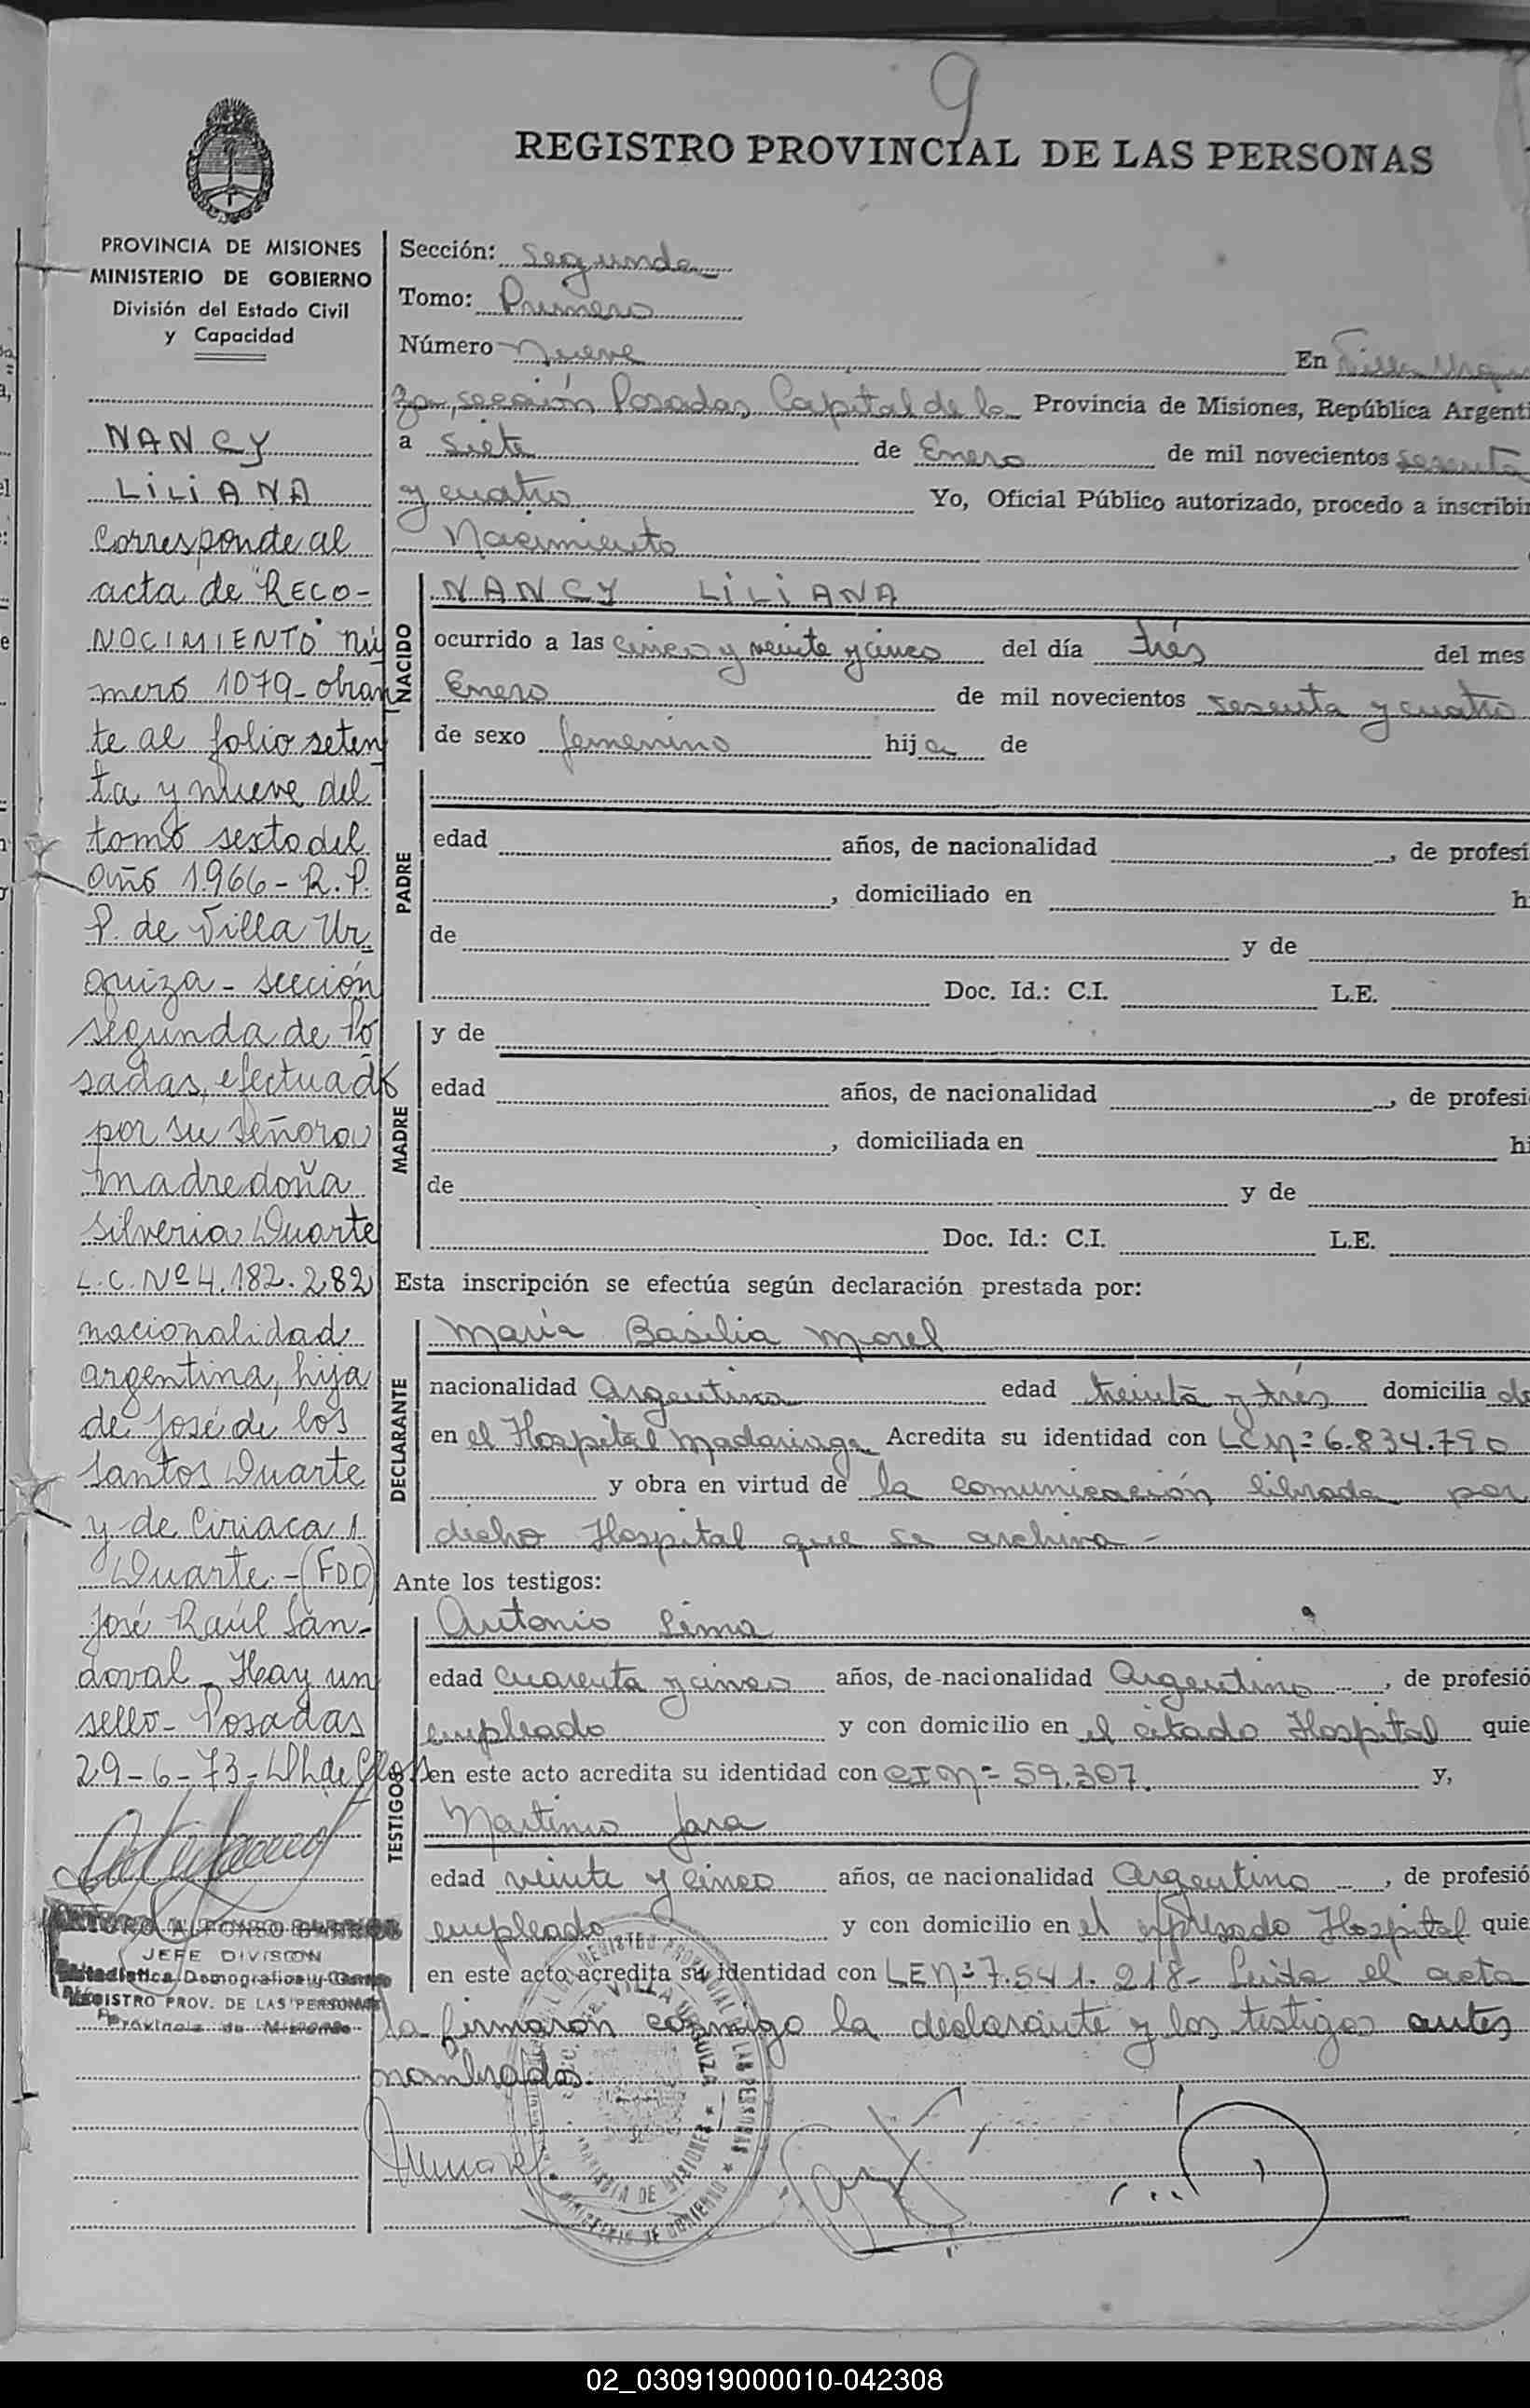 9
REGISTRO PROVINCIAL DE LAS PERSONAS
PROVINCIA DE MISIONES
MINISTERIO DE GOBIERNO
División del Estado Civil
y Capacidad
NANCY
LILIANA
Corresponde al
acta de "RECO-
NOCIMIENTO" nú
mero 1079- obran
te al folio seten
ta y nueve del
tomo sexto del
año 1966- R.P.
P. de Villa Ur
quiza - sección
segunda de Po
sadas, efectuado
por su señora
madre doña
Silveria Duarte
L.C. Nº 4.182.282
nacionalidad
argentina, hija
de José de los
Santos Duarte
y de Ciriaca
Duarte.- (FDO)
José Raúl San-
doval - Hay un
sello - Posadas
29-6-73-
ARTURO ALFONSO
JEFE DIVISION
Estadística Demografica y
REGISTRO PROV. DE LAS PERSONAS
Provincia de Misiones
Sección: Segunda
Tomo: Primero
Número Nueve En Villa Urqui
za, sección Posadas, Capital de la Provincia de Misiones, República Argenti
a siete de Enero de mil novecientos sesenta
y cuatro Yo, Oficial Público autorizado, procedo a inscribir
Nacimiento
NACIDO
NANCY LILIANA
ocurrido a las cinco y veinte y cinco del día trés del mes
Enero de mil novecientos sesenta y cuatro
de sexo femenino hija de
PADRE
edad años, de nacionalidad , de profesi
, domiciliado en h
de y de
Doc. Id.: C.I. L.E.
MADRE
y de
edad años, de nacionalidad , de profesi
, domiciliada en hi
de y de
Doc. Id.: C.I. L.E.
Esta inscripción se efectúa según declaración prestada por:
DECLARANTE
María Basilia Morel
nacionalidad Argentina edad treinta y trés domicilia da
en el Hospital Madariaga Acredita su identidad con LC Nº 6.834.790
y obra en virtud de la comunicación librada por
dicho Hospital que se archiva -
Ante los testigos:
TESTIGOS
Antonio Lima
edad cuarenta y cinco años, de nacionalidad Argentino , de profesió
empleado y con domicilio en el citado Hospital quie
en este acto acredita su identidad con CI Nº 59.307. y,
Martinio Jara
edad veinte y cinco años, de nacionalidad Argentino , de profesió
empleado y con domicilio en el expresado Hospital quie
en este acto acredita su identidad con LE Nº 7.541.218- Leida el acta
la firmaron conmigo la declarante y los testigos antes
nombrados.
REGISTRO PROVINCIAL DE LAS PERSONAS
VILLA URQUIZA
PROVINCIA DE MISIONES
MINISTERIO DE GOBIERNO
02_030919000010-042308